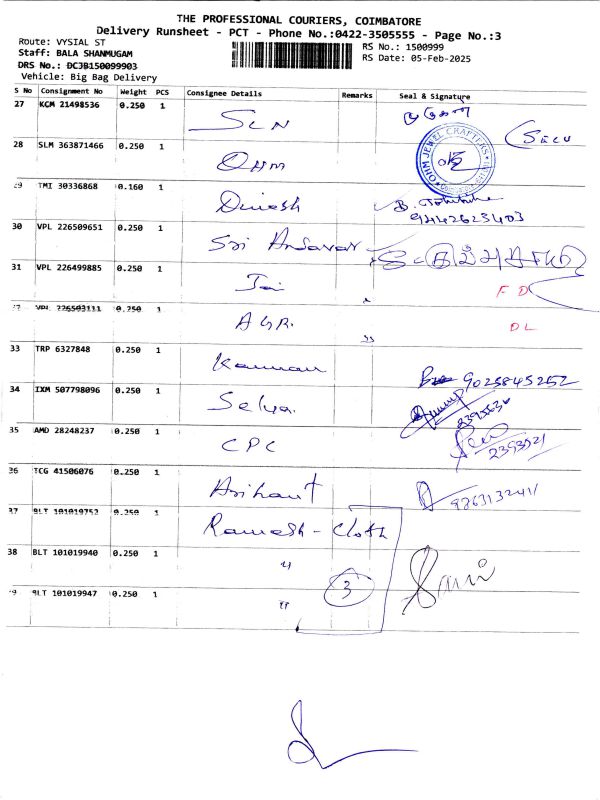 THE PROFESSIONAL COURIERS, COIMBATORE
Delivery Runsheet - PCT - Phone No.:0422-3505555 - Page No.:3
Route: VYSIAL ST
RS No.: 1500999
Staff: BALA SHANMUGAM
RS Date: 05-Feb-2025
DRS No.: DCJB150099903
Vehicle: Big Bag Delivery
S No Consignment No Weight PCS Consignee Details Remarks Seal & Signature
27 KCM 21498536 0.250 1 SLN
28 SLM 363871466 0.250 1 OHM OHM JEWEL CRAFTERS
29 TMI 30336868 0.160 1 Dinesh
9442623403
30 VPL 226509651 0.250 1 Sri Andavar
31 VPL 226499885 0.250 1 Jai F D
32 VPL 226503111 0.250 1 AGR. DL
33 TRP 6327848 0.250 1 Kannan 9025845252
34 IXM 507798096 0.250 1 Selva. 2395636
35 AMD 28248237 0.250 1 CPC 2393921
36 TCG 41506076 0.250 1 Arihant 9863132411
37 BLT 101019752 0.250 1 Ramesh - Cloth
38 BLT 101019940 0.250 1 " 3
39 BLT 101019947 0.250 1 "